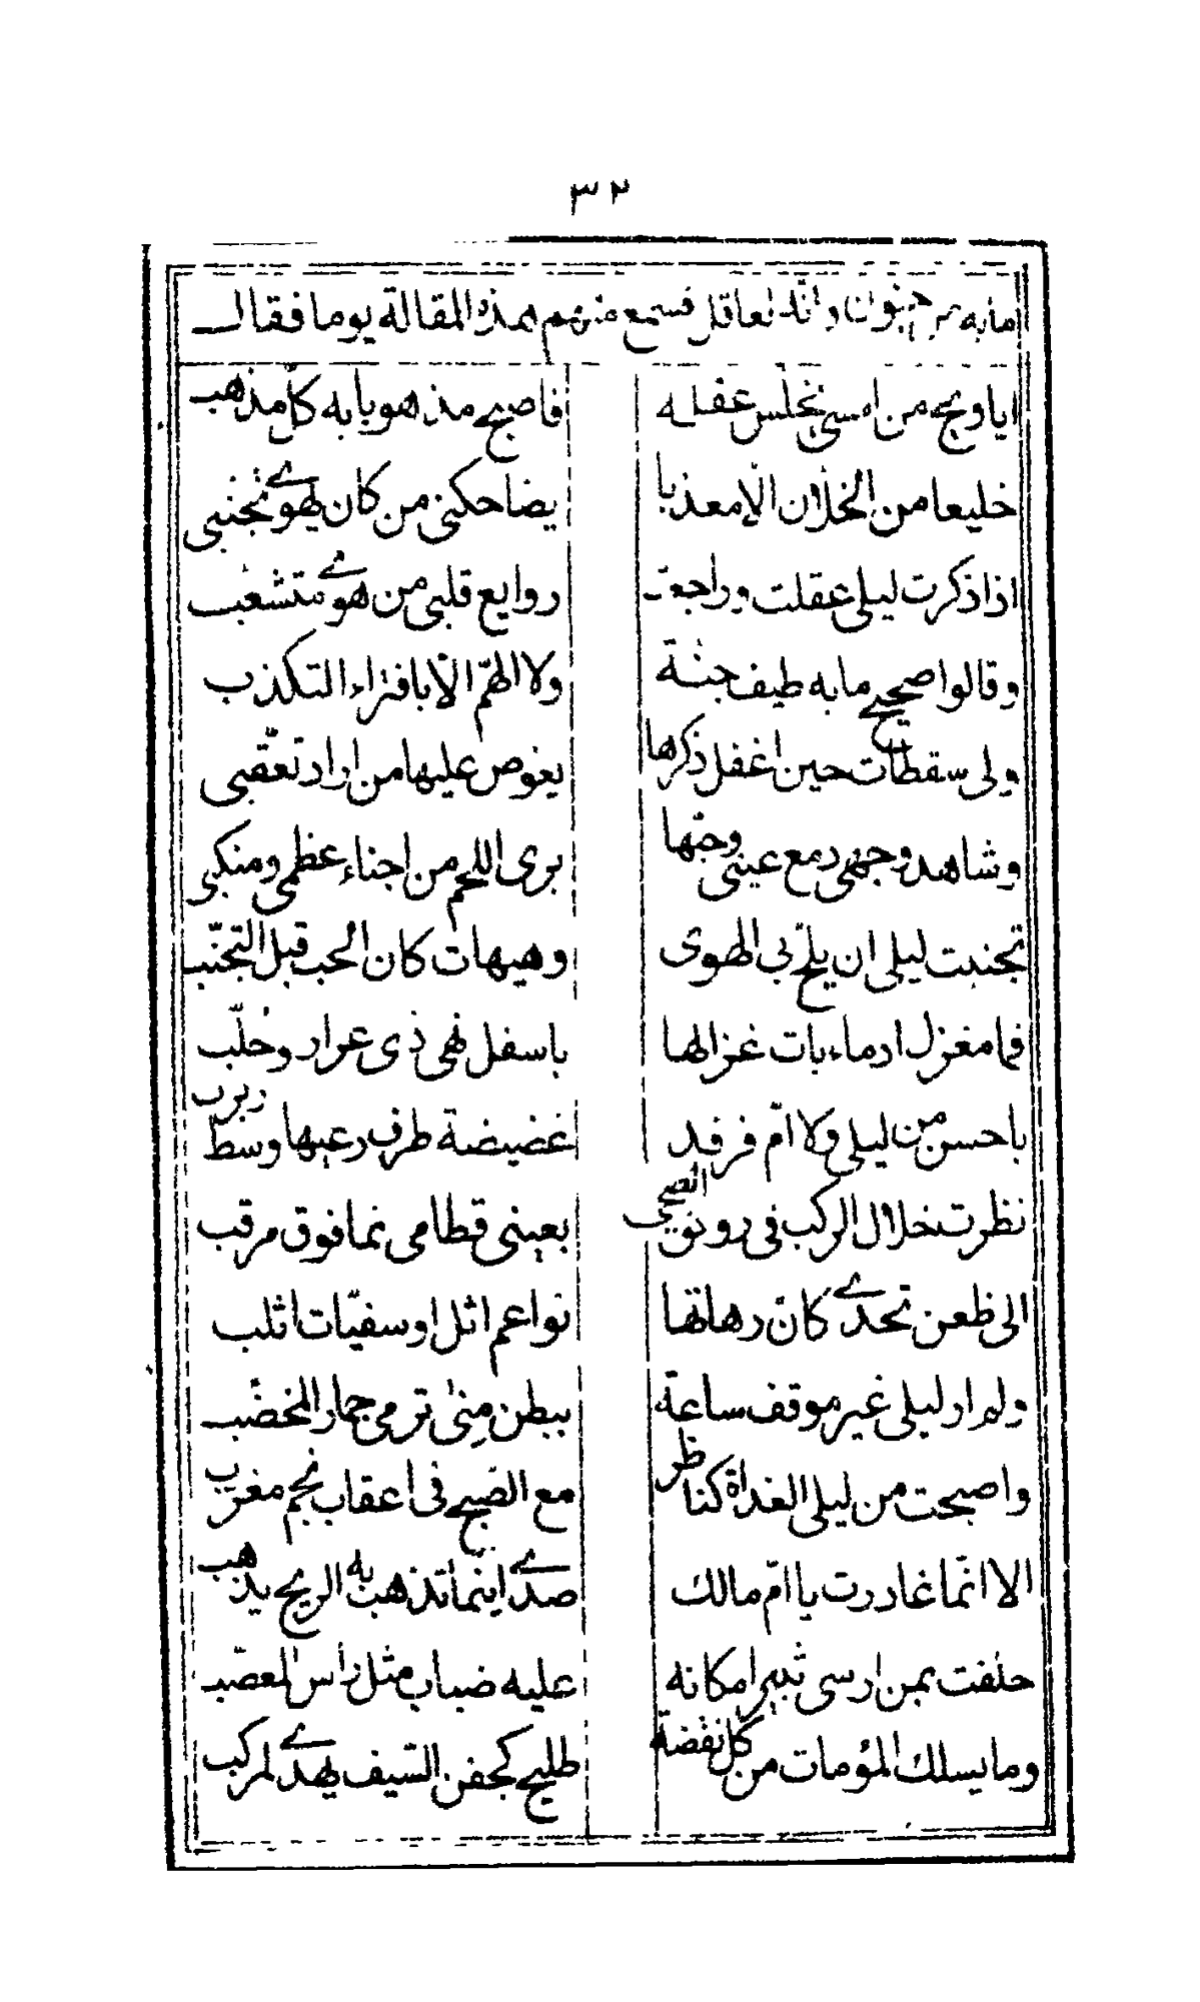 ٣٢
ما به من جنون وانه لعاقل فسمع منهم بهذه المقالة يوما فقال
ايا ويح من امسى تخلس عقله فاصبح مذهوبا به كل مذهب
خليعا من الخلان الا معذبا يضاحكنى من كان يهوى تجنبى
اذا ذكرت ليلى عقلت وراجعت روايع قلبى من هوى متشعب
وقالوا صحيح ما به طيف جنة ولا الهمّ الا بافتراء التكذب
ولى سقطات حين اغفل ذكرها يغوص عليها من اراد تعقبى
وشاهد وجهى دمع عينى وحبها برى اللحم من اجناء عظمى ومنكبى
تجنبت ليلى ان يلح بى الهوى وهيهات كان الحب قبل التجنب
فما مغزل ادماء بات غزالها باسفل نهى ذى عرار وحلّب
باحسن من ليلى ولا امّ فرقد غضيضة طرف رعيها وسط ربرب
نظرت خلال الركب فى رونق الضحى بعينى قطامى نما فوق مرقب
الى ظعن تحدى كان زهاتها نواعم اثل او سفيّات اثلب
ولم ار ليلى غير موقف ساعة ببطن منىٰ ترمى جمار المخضب
واصبحت من ليلى الغداة كناظر مع الصبح فى اعقاب نجم مغرب
الا انّما غادرت يا امّ مالك صدى اينما تذهب به الريح يذهب
حلفت بمن ارسى ثبيرا مكانه عليه ضباب مثل راس المعصب
وما يسلك المؤمات من كل نقضة طليح كجفن السيف يهدى لمركب